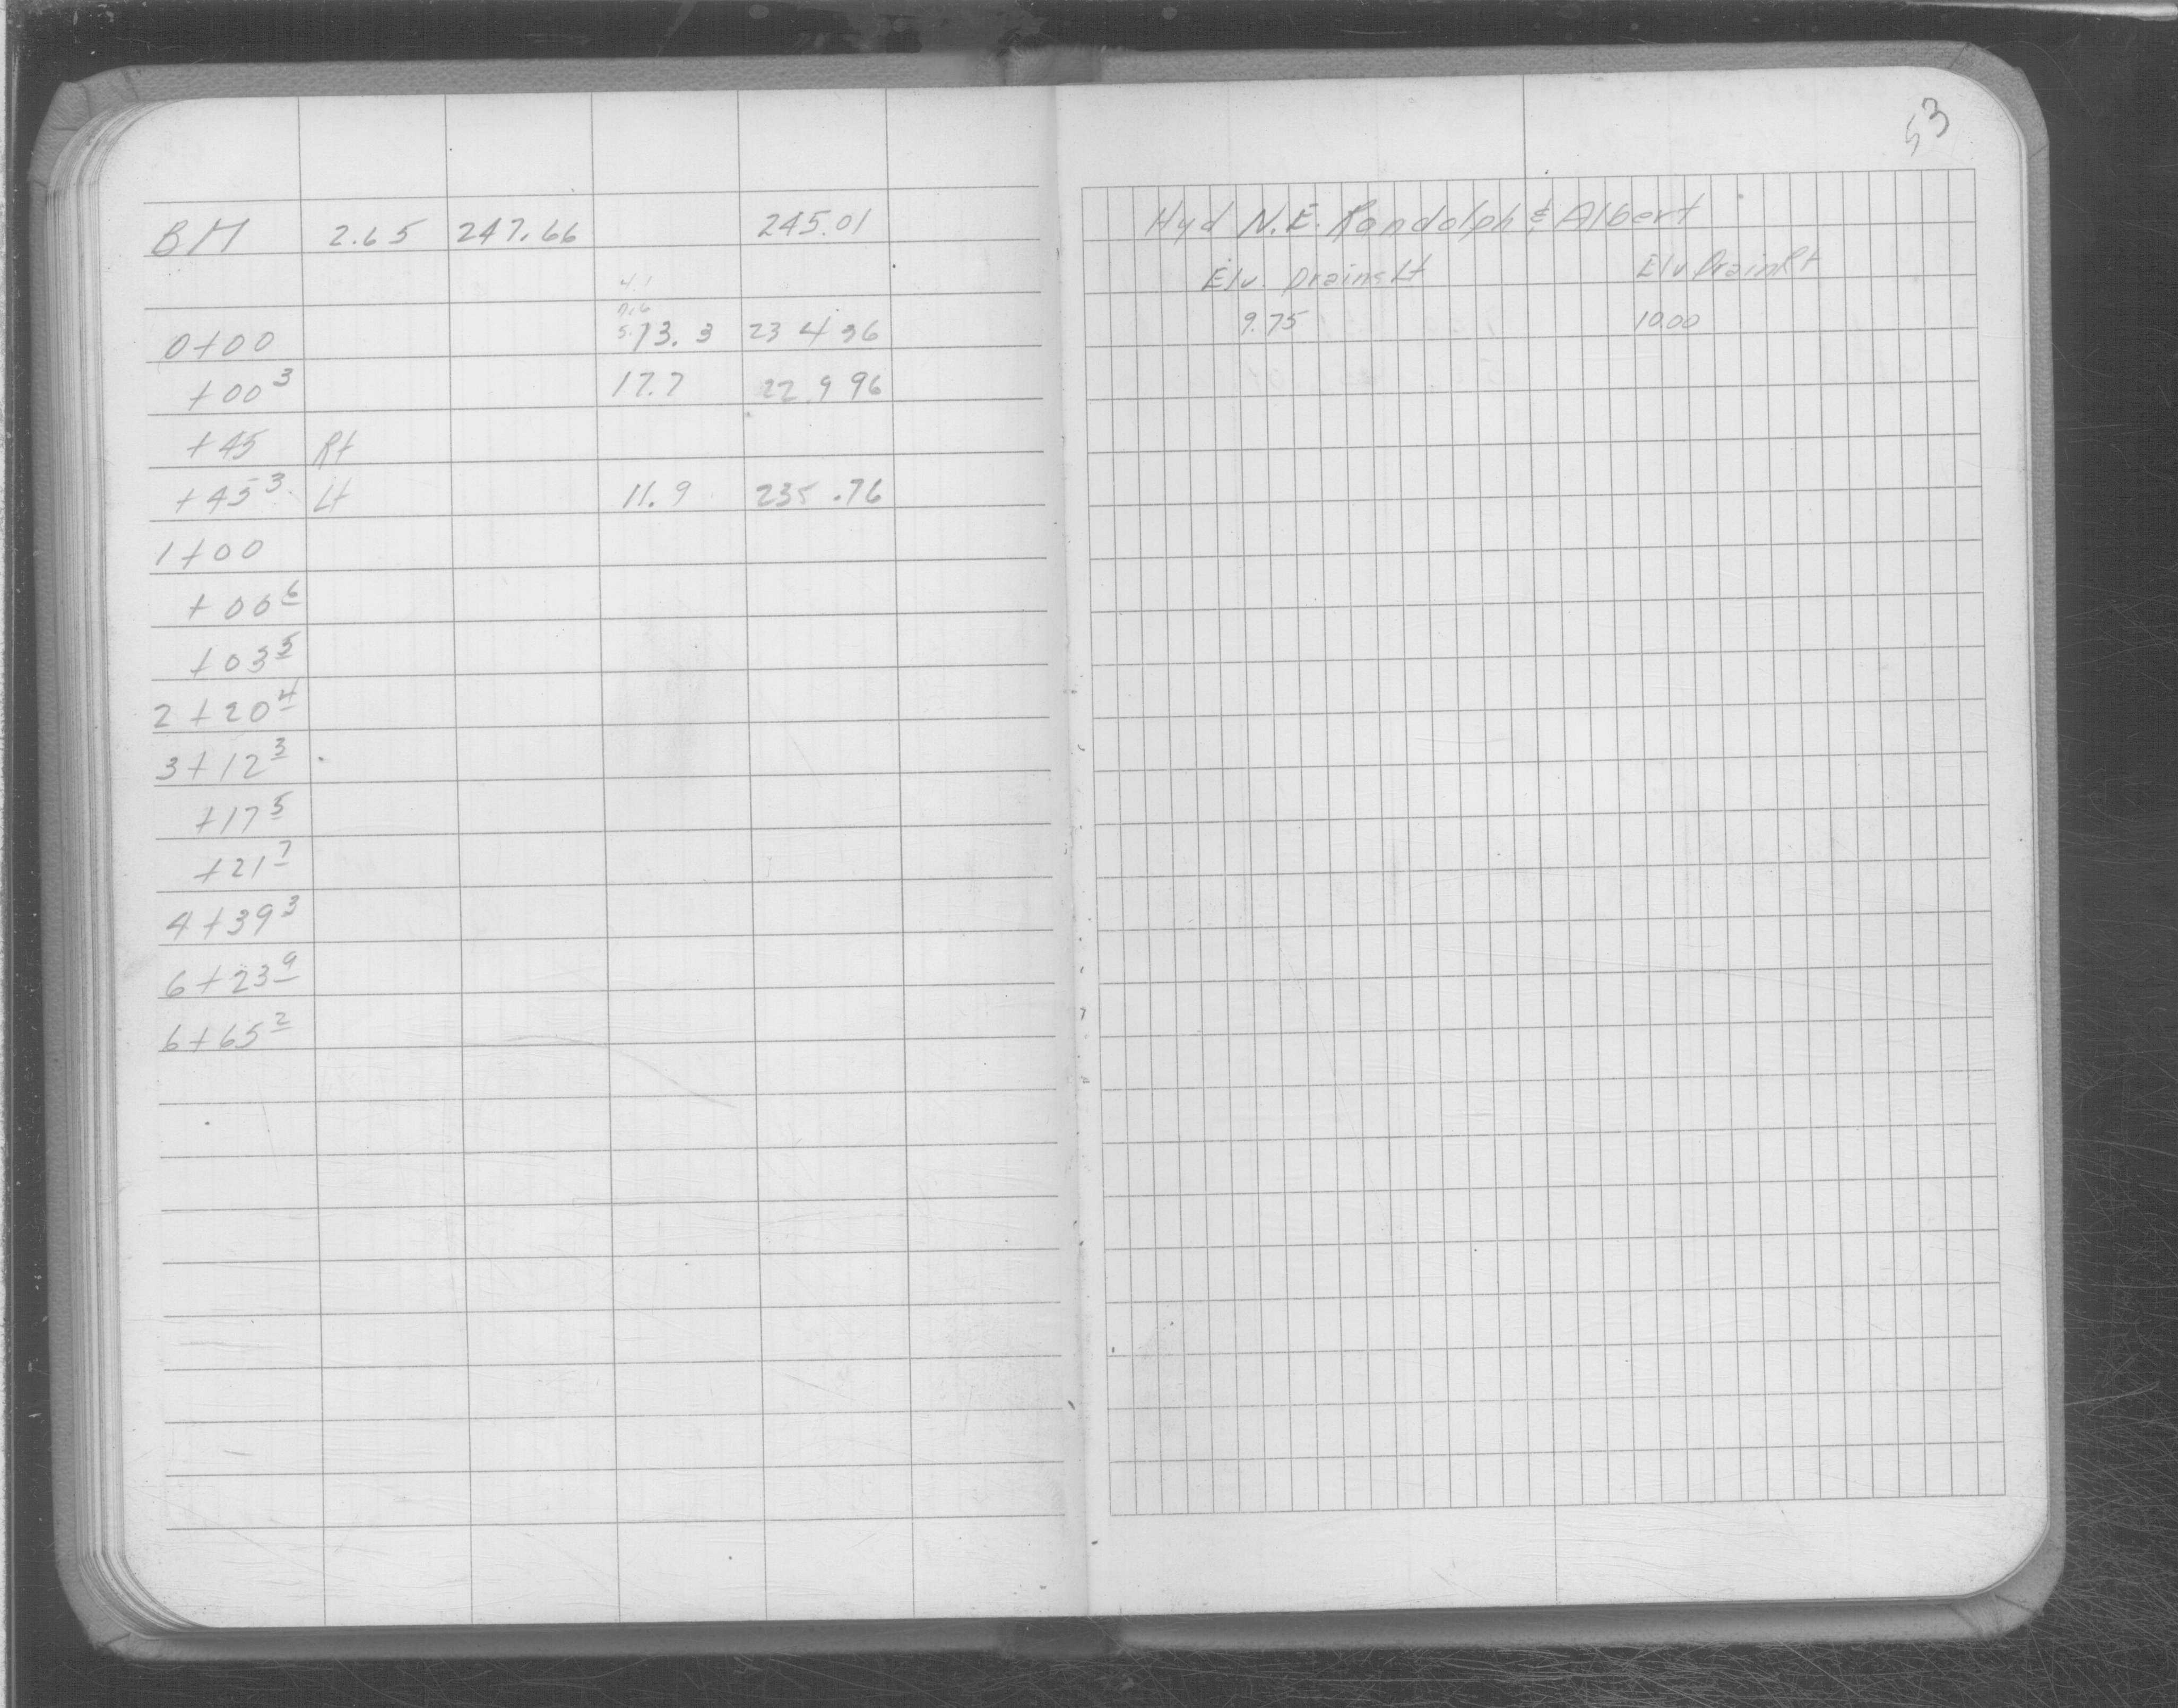 53
BM 2.65 247.66 245.01 Hyd N.E. Randolph & Albert
Elv. Drains Lt Elv Drain Rt
4.1
0+00 13.3 234 36 9.75 10.00
+00 3 17.7 22 9 96
+45 Rt
+45 3 Lt 11.9 235.76
1+00
+06 6
+03 5
2+20 4
3+12 3
+17 5
+21 7
4+39 3
6+23 9
6+65 2